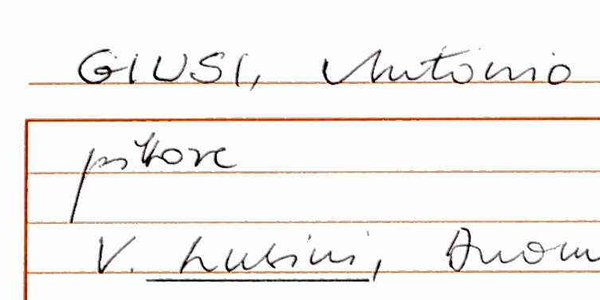 GIUSI, Antonio
pittore
V. Lusini, Anom